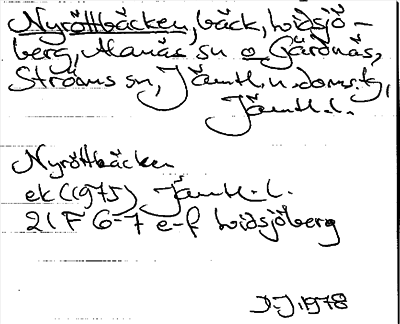 Nyröttbäcken, bäck, Lidsjö-
berg, Alanäs sn o Gärdnäs,
Ströms sn, Jämtl. n. doms.tg,
Jämtl. l.
Nyröttbäcken
ek (1975) Jämtl. l.
21 F 6-7 e-f Lidsjöberg
J.J. 1978